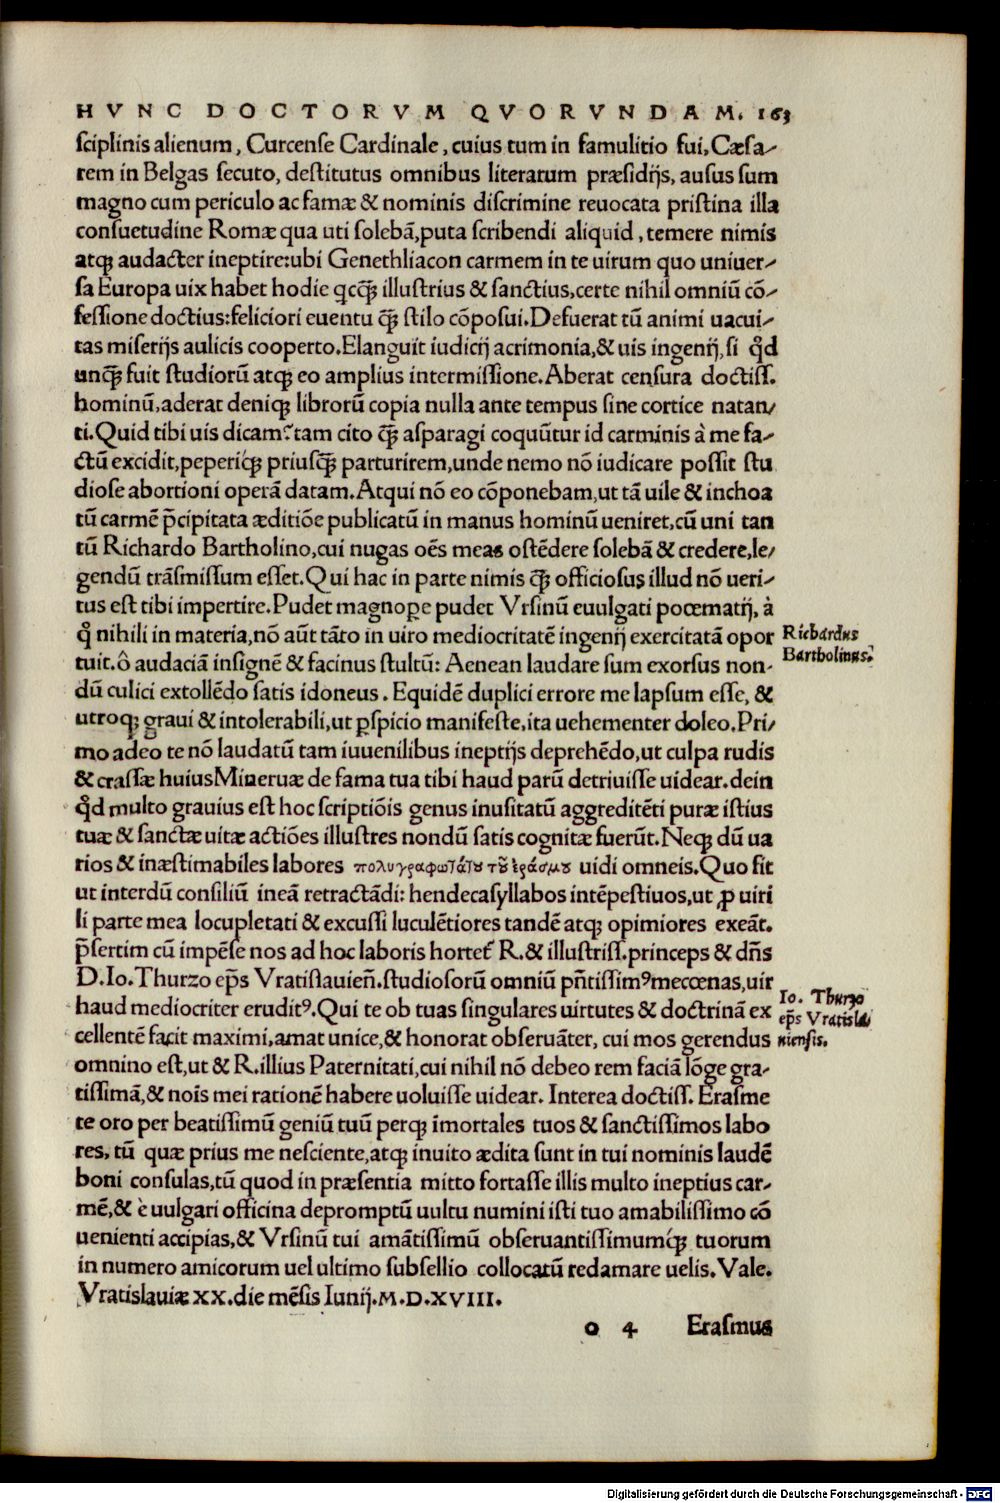 HVNC DOCTORVM QVORVNDAM. 163
sciplinis alienum, Curcense Cardinale, cuius tum in famulitio fui, Cæsa-
rem in Belgas secuto, destitutus omnibus literarum præsidijs, ausus sum
magno cum periculo ac famæ & nominis discrimine reuocata pristina illa
consuetudine Romæ qua uti solebā, puta scribendi aliquid, temere nimis
atqꝫ audacter ineptire: ubi Genethliacon carmem in te uirum quo uniuer-
sa Europa uix habet hodie qcq̄ꝫ illustrius & sanctius, certe nihil omniū cō-
fessione doctius: feliciori euentu q̄ꝫ stilo cōposui. Defuerat tū animi uacui-
tas miserijs aulicis cooperto. Elanguit iudicij acrimonia, & uis ingenij, si qd̛
unq̄ꝫ fuit studiorū atqꝫ eo amplius intermissione. Aberat censura doctiss.
hominū, aderat deniqꝫ librorū copia nulla ante tempus sine cortice natan/
ti. Quid tibi uis dicam? tam cito q̄ꝫ asparagi coquūtur id carminis à me fa-
ctū excidit, peperiqꝫ priusq̄ꝫ parturirem, unde nemo nō iudicare possit stu
diose abortioni operā datam. Atqui nō eo cōponebam, ut tā uile & inchoa
tū carmē p̄cipitata æditiōe publicatū in manus hominū ueniret, cū uni tan
tū Richardo Bartholino, cui nugas oēs meas ostēdere solebā & credere, le/
gendū trāsmissum esset. Qui hac in parte nimis q̄ꝫ officiosus illud nō ueri-
tus est tibi impertire. Pudet magnoꝑe pudet Vrsinū euulgati poematij, à
q̊ nihili in materia, nō aūt tāto in uiro mediocritatē ingenij exercitatā opor
tuit. ô audaciā insignē & facinus stultū: Aenean laudare sum exorsus non-
dū culici extollēdo satis idoneus. Equidē duplici errore me lapsum esse, &
utroqꝫ graui & intolerabili, ut ꝑspicio manifeste, ita uehementer doleo. Pri/
mo adeo te nō laudatū tam iuuenilibus ineptijs deprehēdo, ut culpa rudis
& crassæ huius Mineruæ de fama tua tibi haud parū detriuisse uidear. dein
qd̛ multo grauius est hoc scriptiōis genus inusitatū aggreditēti puræ istius
tuæ & sanctæ uitæ actiōes illustres nondū satis cognitæ fuerūt. Neqꝫ dū ua
rios & inæstimabiles labores πολυγραφωτάτου τοῦ ἐράσμου uidi omneis. Quo fit
ut interdū consiliū ineā retractādi: hendecasyllabos intēpestiuos, ut ꝓ uiri
li parte mea locupletati & excussi luculētiores tandē atqꝫ opimiores exeāt.
p̄sertim cū impēse nos ad hoc laboris hortet᷑ R. & illustriss. princeps & dn̄s
D. Io. Thurzo ep̄s Vratislauień. studiosorū omniū pn̄tissimꝰ mecœnas, uir
haud mediocriter eruditꝰ. Qui te ob tuas singulares uirtutes & doctrinā ex
cellentē facit maximi, amat unice, & honorat obseruāter, cui mos gerendus
omnino est, ut & R. illius Paternitati, cui nihil nō debeo rem faciā lōge gra-
tissimā, & nois̄ mei rationē habere uoluisse uidear. Interea doctiss. Erasme
te oro per beatissimū geniū tuū perqꝫ īmortales tuos & sanctissimos labo
res, tū quæ prius me nesciente, atqꝫ inuito ædita sunt in tui nominis laudē
boni consulas, tū quod in præsentia mitto fortasse illis multo ineptius car-
mē, & è uulgari officina depromptū uultu numini isti tuo amabilissimo cō
uenienti accipias, & Vrsinū tui amātissimū obseruantissimumqꝫ tuorum
in numero amicorum uel ultimo subsellio collocatū redamare uelis. Vale.
Vratislauiæ XX. die mēsis Iunij. M. D. XVIII.
o 4 Erasmus
Richardus
Bartholinus.
Io. Thurzo
ep̄s Vratisla
uiensis.
Digitalisierung gefördert durch die Deutsche Forschungsgemeinschaft - DFG